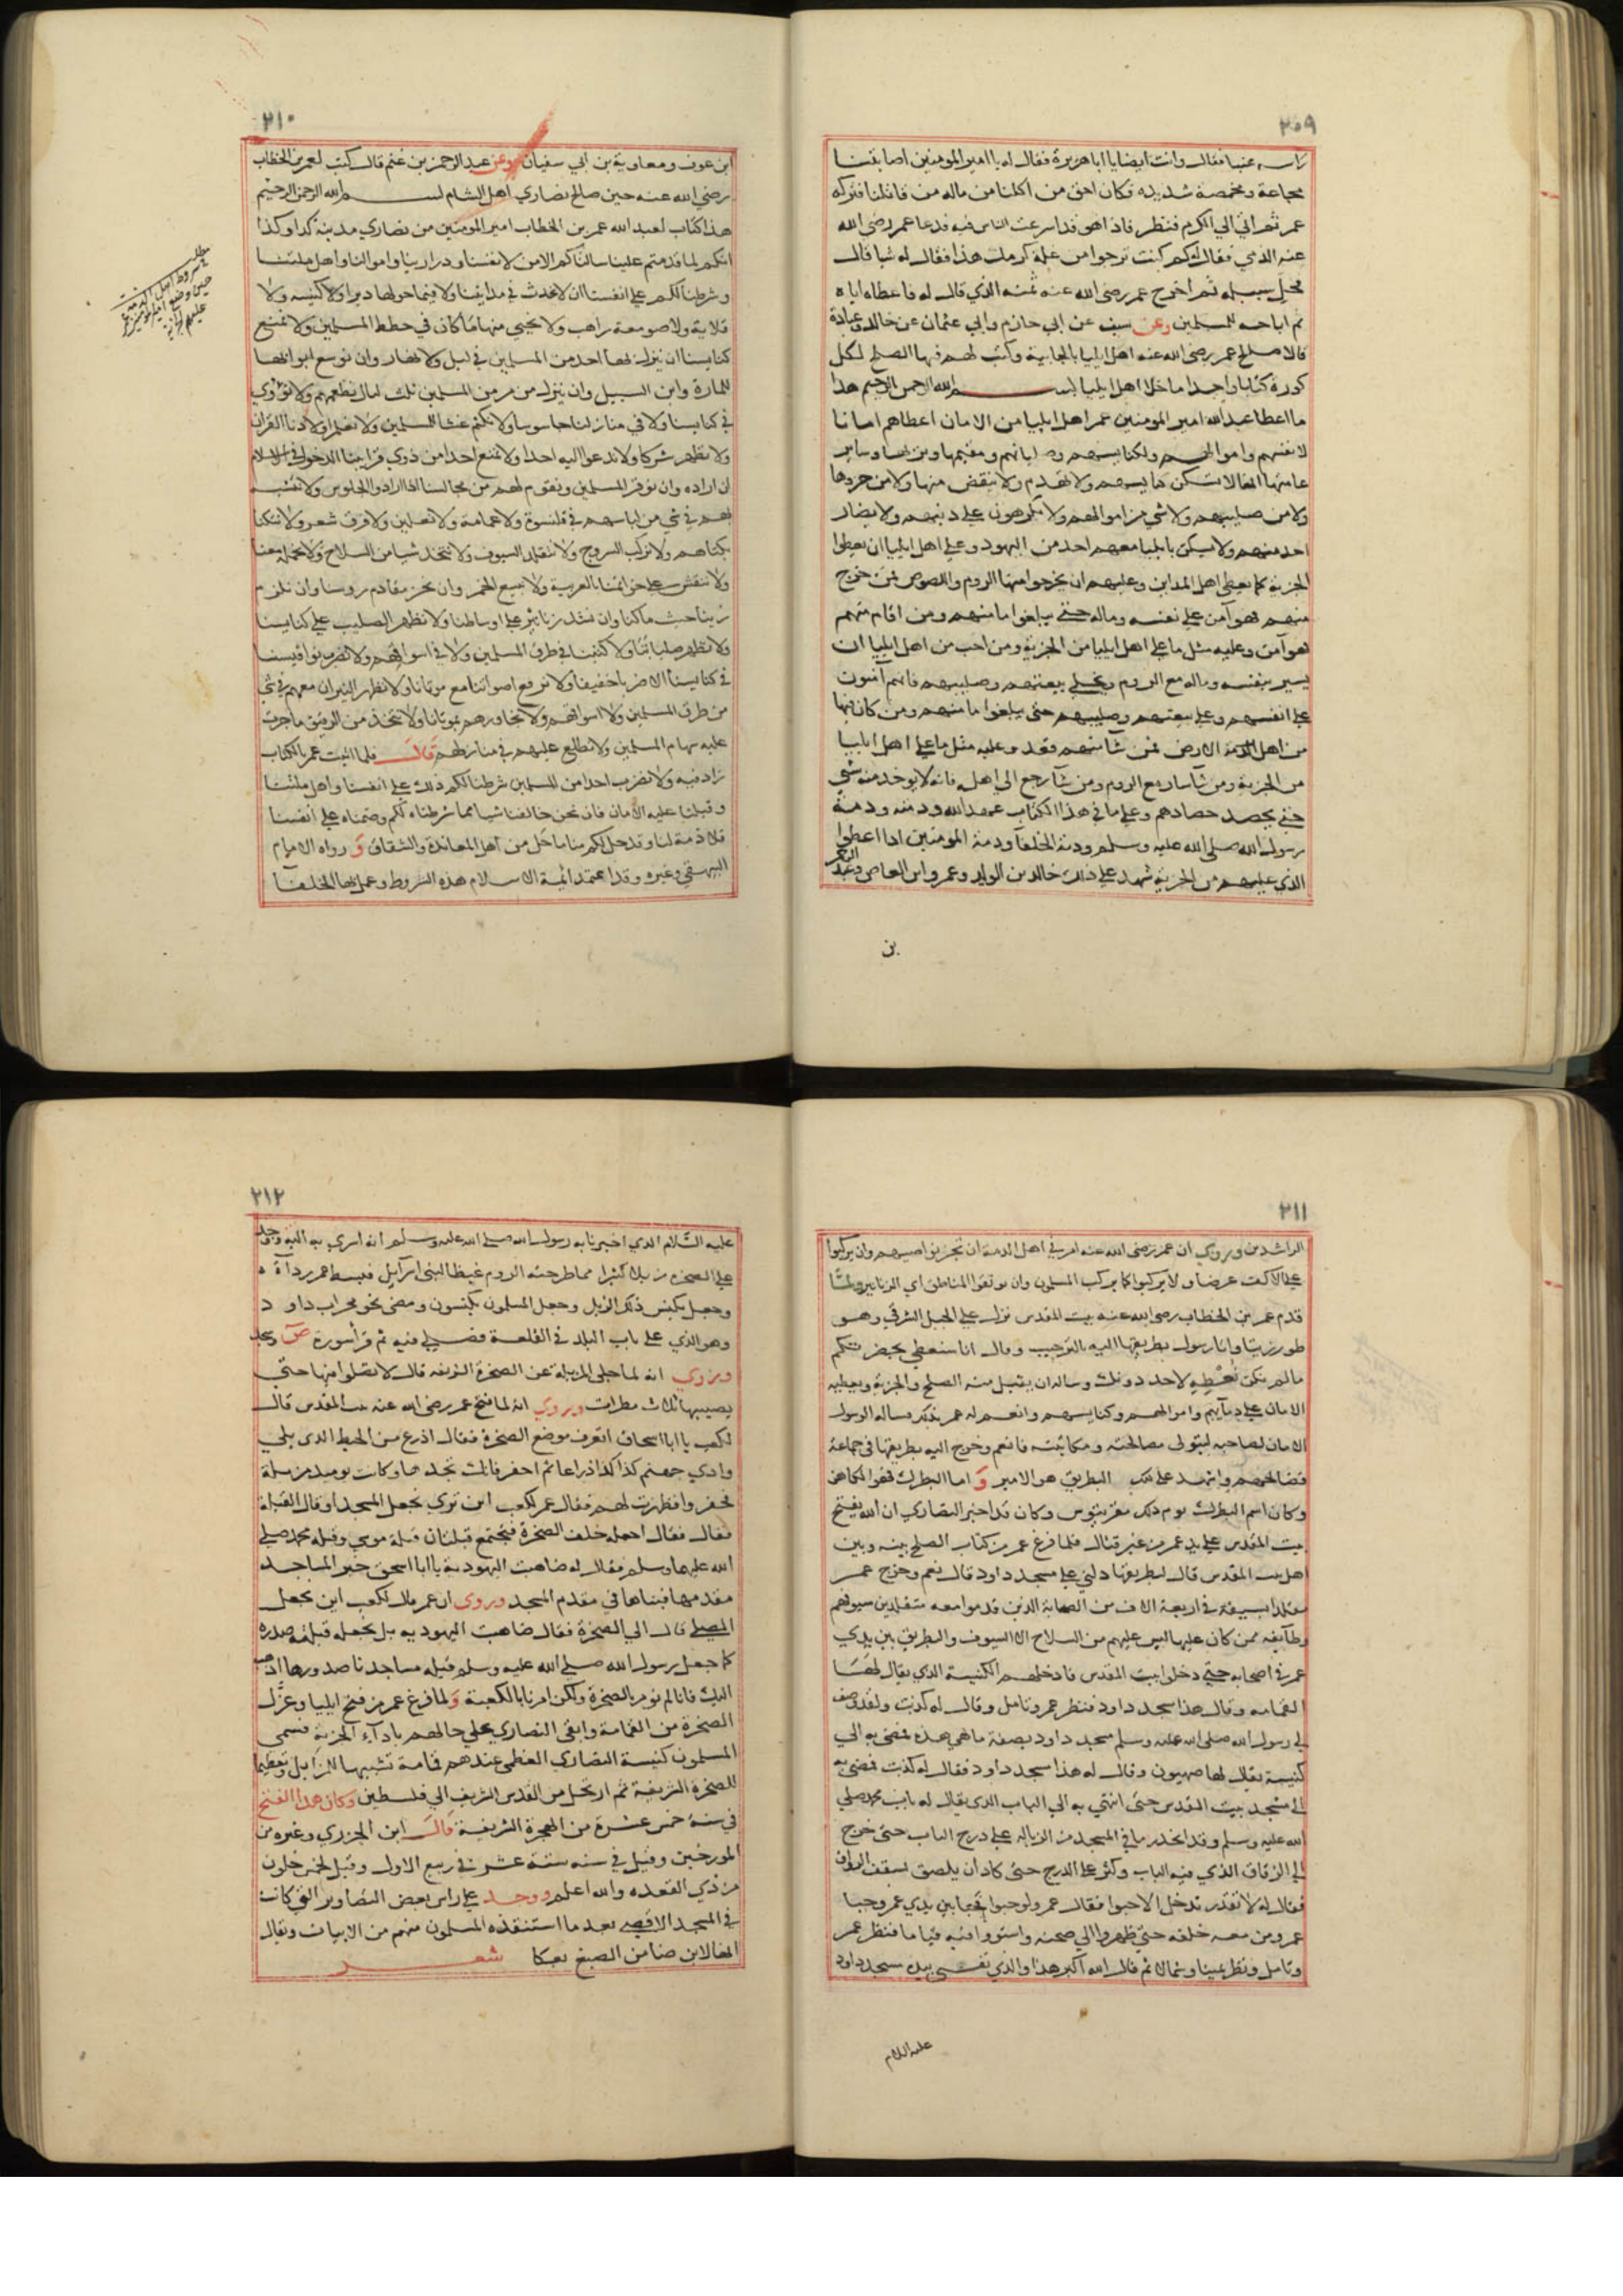 ٢٠٩
راسه عنبا فقال وانت ايضا يا ابا هريرة فقال له يا امير المومنين اصابتنا
مجاعة ومخمصة شديده فكان احق من اكلنا من ماله من قاتلنا فتركه
عمر ثم اتي الي الكرم فنظر فاذا هو قد اسرعت الناس فيه فدعا عمر رضي الله
عنه الذمي فقال له كم كنت ترجوا من غلة كرمك هذا فقال له شيا قال
فخل سبيله ثم اخرج عمر رضي الله عنه ثمنه الذي قال له فاعطاه اياه
ثم اباحه للمسلمين وعن سيف عن ابي حازم وابي عثمان عن خالد وعبادة
قالا صالح عمر رضي الله عنه اهل ايليا بالجابية وكتب لهم فيها الصلح لكل
كورة كتابا واحدا ما خلا اهل ايليا بسم الله الرحمن الرحيم هذا
ما اعطا عبد الله امير المومنين عمر اهل ايليا من الامان اعطاهم امانا
لانفسهم واموالهم ولكنايسهم وصلبانهم ومقيمها وبريها وساير
ملتها انها لا تسكن كنايسهم ولا تهدم ولا ينتقض منها ولا من حدها
ولا من صليبهم ولا شي من اموالهم ولا يكرهون علي دينهم ولا يضار
احد منهم ولا يسكن بايليا معهم احد من اليهود وعلي اهل ايليا ان يعطوا
الجزية كما يعطي اهل المداين وعليهم ان يخرجوا منها الروم واللصوص فمن خرج
منهم فهو آمن علي نفسه وماله حتي يبلغوا مامنهم ومن اقام منهم
فهو آمن وعليه مثل ما علي اهل ايليا من الجزية ومن احب من اهل ايليا ان
يسير بنفسه وماله مع الروم ويخلي بيعتهم وصليبهم فانهم آمنون
علي انفسهم وعلي بيعتهم وصليبهم حتي يبلغوا مامنهم ومن كان فيها
من اهل الارض فمن شا منهم قعد وعليه مثل ما علي اهل ايليا
من الجزية ومن شآ سار مع الروم ومن شآ رجع الي اهله فانه لا يوخد منه شي
حتي يحصد حصادهم وعلي ما في هذا الكتاب عهد الله وذمته وذمة
رسول الله صلي الله عليه وسلم وذمة الخلفآ وذمة المومنين اذا اعطوا
الذي عليهم من الجزية شهد علي ذلك خالد بن الوليد وعمرو ابن العاص وعبد الرحمن
بن
٢١٠
ابن عوف ومعاوية بن ابي سفيان وعن عبد الرحمن بن غنم قال كتب لعمر بن الخطاب
رضي الله عنه حين صالح نصاري اهل الشام بسم الله الرحمن الرحيم
هذا كتاب لعبد الله عمر بن الخطاب امير المومنين من نصاري مدينة كذا وكذا
انكم لما قدمتم علينا سالناكم الامن لانفسنا ودرارينا واموالنا واهل ملتنا
وشرطنا لكم علي انفسنا ان لا نحدث في مداينا ولا فيما حولها ديرا ولا كنيسه ولا
قلاية ولا صومعة راهب ولا نحيي منها ما كان في خطط المسلمين ولا نمنع
كنايسنا ان ينزلها احد من المسلمين في ليل ولا نهار وان نوسع ابوابها
للمارة وابن السبيل وان ينزل من مر من المسلمين ثلث ليال نطعمهم ولا نؤوي
في كنايسنا ولا في منازلنا جاسوسا ولا نكتم غشا للمسلمين ولا نعلم اولادنا القرآن
ولا نظهر شركا ولا ندعوا اليه احدا ولا نمنع احدا من ذوي قرابتنا الدخول في الاسلام
ان اراده وان نوقر المسلمين ونقوم لهم من مجالسنا اذا ارادوا الجلوس ولا نتشبه
بهم في شي من لباسهم في قلنسوة ولا عمامة ولا نعلين ولا فرق شعر ولا نتكنا
بكناهم ولا نركب السروج ولا نتقلد السيوف ولا نتخذ شيا من السلاح ولا نحمله معنا
ولا ننقش علي خواتمنا بالعربية ولا نبيع الخمر وان نجز مقادم روسنا وان نلزم
زينا حيث ما كنا وان نشد زنانير علي اوساطنا ولا نظهر الصليب علي كنايسنا
ولا نظهر صلباننا ولا كتبنا في طرق المسلمين ولا في اسواقهم ولا نضرب نواقيسنا
في كنايسنا الا ضربا خفيفا ولا نرفع اصواتنا مع موتانا ولا نظهر النيران معهم في شي
من طرق المسلمين ولا اسواقهم ولا نجاورهم بموتانا ولا نتخذ من الرقيق ما جرت
عليه سهام المسلمين ولا نطلع عليهم في منازلهم قال فلما اتيت عمر بالكتاب
زاد فيه ولا نضرب احدا من المسلمين شرطنا لكم ذلك علي انفسنا واهل ملتنا
وقبلنا عليه الامان فان نحن خالفنا شيا مما شرطناه لكم وضمناه علي انفسنا
فلا ذمة لنا وقد حل لكم منا ما حل من اهل المعاندة والشقاق و رواه الامام
البيهقي وغيره وقد اعتمد ائمة الاسلام هذه الشروط وعمل بها الخلفآ
مطلب
شروط اهل الذمة
حين وضع امير المومنين عمر
عليهم الجزية
٢١١
الراشدين وروي ان عمر رضي الله عنه امر في اهل الذمة ان تجز نواصيهم وان يركبوا
علي الاكف عرضا ولا يركبوا كما يركب المسلمون وان يوثقوا المناطق اي الزنانير ولمّا
قدم عمر بن الخطاب رضي الله عنه بيت المقدس نزل علي الجبل الشرقي وهو
طور زيتا واتا رسول بطريقها اليه بالترحيب وقال انا سنعطي بحضرتكم
ما لم نكن نعطيه لاحد دونك وساله ان يقبل منه الصلح والجزية ويعطيه
الامان علي دمآيهم واموالهم وكنايسهم وانعم له عمر بذلك فساله الرسول
الامان لصاحبه ليتولي مصالحته ومكاتبته فانعم وخرج اليه بطريقها في جماعة
فصالحهم واشهد علي ذلك البطريق هو الامير و اما البطرك فهو الكاهن
وكان اسم البطرك يوم ذلك صفرنيوس وكان قد اخبر النصاري ان الله يفتح
بيت المقدس علي يد عمر من غير قتال فلما فرغ عمر من كتاب الصلح بينه وبين
اهل بيت المقدس قال لبطريقها دلني علي مسجد داود قال نعم وخرج عمر
متقلدا بسيفه في اربعة الاف من الصحابة الذين قدموا معه متقلدين سيوفهم
وطآيفة ممن كان عليها ليس عليهم من السلاح الا السيوف والبطريق بين يدي
عمر في اصحابه حتي دخلوا بيت المقدس فادخلهم الكنيسة الذي يقال لها
القمامه وقال هذا مسجد داود فنظر عمر وتامل وقال له كذبت ولقد وصف
لي رسول الله صلي الله عليه وسلم مسجد داود بصفة ما هي هذه فمضي به الي
كنيسة يقال لها صهيون وقال له هذا مسجد داود فقال له كذبت فمضي به
الي مسجد بيت المقدس حتي انتهي به الي الباب الذي يقال له باب محمد صلي
الله عليه وسلم وقد انحدر ما في المسجد من الزبالة علي درج الباب حتي خرج
الي الزقاق الذي فيه الباب وكثر علي الدرج حتي كاد ان يلصق بسقف الرواق
فقال له لا تقدر تدخل الا حبوا فقال عمر ولو حبوا فحبا بين يدي عمر وحبا
عمر ومن معه خلفه حتي ظهروا الي صحنه واستووا فيه قياما فنظر عمر
وتامل ونظر يمينا وشمالا ثم قال الله اكبر هذا والذي نفسي بيده مسجد داود
عليه السلام
٢١٢
عليه السّلام الذي اخبرنا به رسول الله صلي الله عليه وسلم انه اسري به اليه ووجد
علي الصخرة زبلا كثيرا مما طرحته الروم غيظا لبني اسرآيل فبسط عمر ردآه
وجعل يكنس ذلك الزبل وجعل المسلمون يكنسون ومضي نحو محراب داود
وهو الذي علي باب البلد في القلعة فصلي فيه ثم قرأ سورة ص وسجد
وروي انه لما جلي المزبلة عن الصخرة الشريفه قال لا تصلوا فيها حتي
يصيبها ثلاث مطرات وروي انه لما فتح عمر رضي الله عنه بيت المقدس قال
لكعب يا ابا اسحاق اتعرف موضع الصخرة فقال اذرع من الحيط الذي يلي
وادي جهنم كذا كذا ذراعا ثم احفر فانك تجدها وكانت يوميذ مزبلة
فحفروا فظهرت لهم فقال عمر لكعب اين تري نجعل المسجد او قال القبلة
فقال فقال اجعله خلف الصخرة فتجتمع قبلتان قبلة موسي وقبله محمد صلي
الله عليهما وسلم فقال له ضاهيت اليهودية يا ابا اسحق خير المساجد
مقدمها فبناها في مقدم المسجد وروي ان عمر قال لكعب اين نجعل
المصلي قال الي الصخرة فقال ضاهيت اليهوديه بل نجعله قبلته صدره
كما جعل رسول الله صلي الله عليه وسلم قبله مساجدنا صدورها اذهب
اليك فانا لم نومر بالصخرة ولكن امرنا بالكعبة ولما فرغ عمر من فتح ايليا وعزّل
الصخرة من القمامة وابقي النصاري علي حالهم بادآء الجزية فسمي
المسلمون كنيسة النصاري العظمي عندهم قمامة تشبيها بالمزابل وتعظيما
للصخرة الشريفة ثم ارتحل من القدس الشريف الي فلسطين وكان هذا الفتح
في سنة خمس عشرة من الهجرة الشريفة قال ابن الجزري وغيره من
المورخين وقيل في سنه ستة عشر في ربيع الاول وقيل لخمس خلون
من ذي القعده والله اعلم ووجد علي راس بعض التصاوير التي كانت
في المسجد الاقصي بعد ما استنقذه المسلمون منهم من الابيات ويقال
انها لابن ضامن الصبغ بعكا شعر